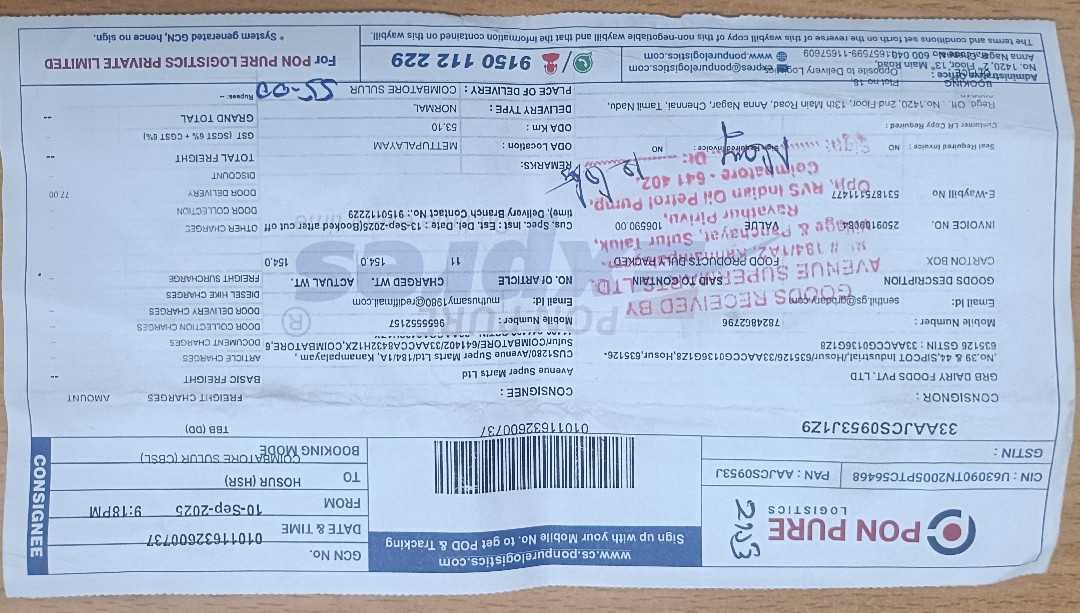 PON PURE
LOGISTICS
2253
www.cs.ponpurelogistics.com
Sign up with your Mobile No. to get POD & Tracking
GCN No.
01011632600737
DATE & TIME
10-Sep-2025 9:18PM
FROM
HOSUR (HSR)
TO
COIMBATORE SULUR (CBSL)
BOOKING MODE
TBB (DD)
CONSIGNEE
CIN : U63090TN2005PTC56468
PAN : AAJCS0953J
GSTIN :
33AAJCS0953J1Z9
01011632600737
CONSIGNOR :
GRB DAIRY FOODS PVT. LTD
,No.39 & 44,SIPCOT Industrial,Hosur/635126/33AAACCG0136G1Z8,Hosur,635126-
635126 GSTIN : 33AAACCG0136G1Z8
Mobile Number : 7824862796
Email Id: senthil.gs@grbdairy.com
CONSIGNEE :
Avenue Super Marts Ltd
CUS1280/Avenue Super Marts Ltd/184/1A, Kannampalayam ,
Sulur/COIMBATORE/641402/33AACCA8432H1ZX,COIMBATORE,6
Mobile Number : 9655552157
Email Id: muthusamy1980@rediffmail.com
FREIGHT CHARGES
AMOUNT
BASIC FREIGHT --
ARTICLE CHARGES
DOCUMENT CHARGES
DOOR COLLECTION CHARGES
DOOR DELIVERY CHARGES
DIESEL HIKE CHARGES
FREIGHT SURCHARGE
OTHER CHARGES
DOOR COLLECTION
DOOR DELIVERY 77.00
DISCOUNT
TOTAL FREIGHT --
GST (SGST 6% + CGST 6%) --
GRAND TOTAL --
Rupees: --
55-00
GOODS DESCRIPTION
SAID TO CONTAIN
NO. OF ARTICLE
CHARGED WT.
ACTUAL WT.
CARTON BOX
FOOD PRODUCTS DULY PACKED
11
154.0
154.0
INVOICE NO. 2509109084
VALUE 106590.00
E-Waybill No 531875111477
Cus. Spec. Inst : Est. Del. Date : 13-Sep-2025(Booked after cut off
time), Delivery Branch Contact No.: 9150112229
REMARKS:
ODA Location : METTUPALAYAM
ODA Km : 53.10
DELIVERY TYPE : NORMAL
PLACE OF DELIVERY : COIMBATORE SULUR
Seal Required Invoice : NO
Sign Required Invoice : NO
Customer LR Copy Required :
GOODS RECEIVED BY
AVENUE SUPERMARTS LTD.
184/1A2, Kannampalayam
Village Panchayat, Sulur Taluk,
Ravathur Pirivu,
Opp. RVS Indian Oil Petrol Pump,
Coimbatore - 641 402.
Sign: Dt:
PON PURE
®
Xpres
time
Regd. Off. No.1420, 2nd Floor, 13th Main Road, Anna Nagar, Chennai, Tamil Nadu,
BOOKING
Plot no 18
Opposite to Delivery Logistics
Administrative Office :
No. 1420, 2nd Floor, 13th Main Road,
Anna Nagar, Chennai 600 040
expres@ponpurelogistics.com
www.ponpurelogistics.com
9150 112 229
For PON PURE LOGISTICS PRIVATE LIMITED
The terms and conditions set forth on the reverse of this waybill copy of this non-negotiable waybill and that the information contained on this waybill.
* System generated GCN, hence no sign.